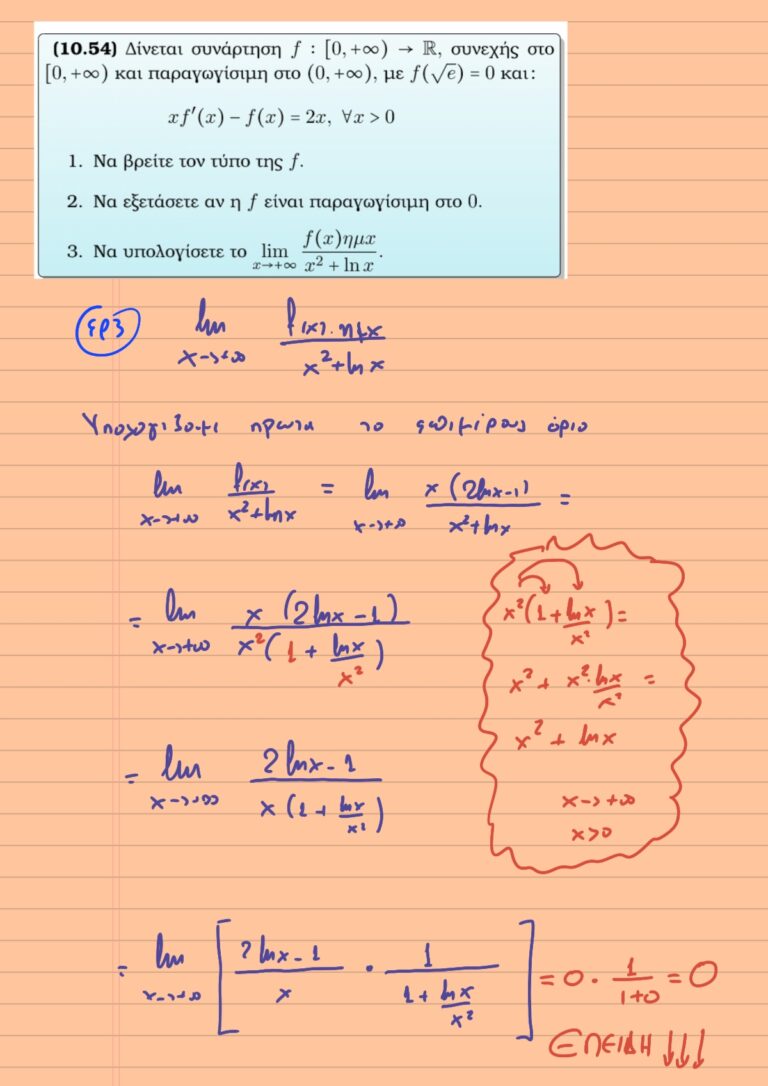 (10.54) Δίνεται συνάρτηση f : [0, +∞) → ℝ, συνεχής στο
[0, +∞) και παραγωγίσιμη στο (0, +∞), με f(√e) = 0 και:
xf′(x) − f(x) = 2x, ∀x > 0
1. Να βρείτε τον τύπο της f.
2. Να εξετάσετε αν η f είναι παραγωγίσιμη στο 0.
3. Να υπολογίσετε το lim x→+∞ f(x)ημx / (x² + ln x).
ερ3 lim x→+∞ f(x)·ημx / (x²+lnx)
Υπολογίζουμε πρώτα το επιμέρους όριο
lim x→+∞ f(x) / (x²+lnx) = lim x→+∞ x(2lnx-1) / (x²+lnx) =
= lim x→+∞ x(2lnx-1) / (x²(1+lnx/x²))
x²(1+lnx/x²) =
x² + x²·lnx/x² =
x² + lnx
x→+∞
x>0
= lim x→+∞ (2lnx-1) / (x(1+lnx/x²))
= lim x→+∞ [(2lnx-1)/x · 1/(1+lnx/x²)] = 0 · 1/(1+0) = 0
ΕΠΕΙΔΗ ↓↓↓